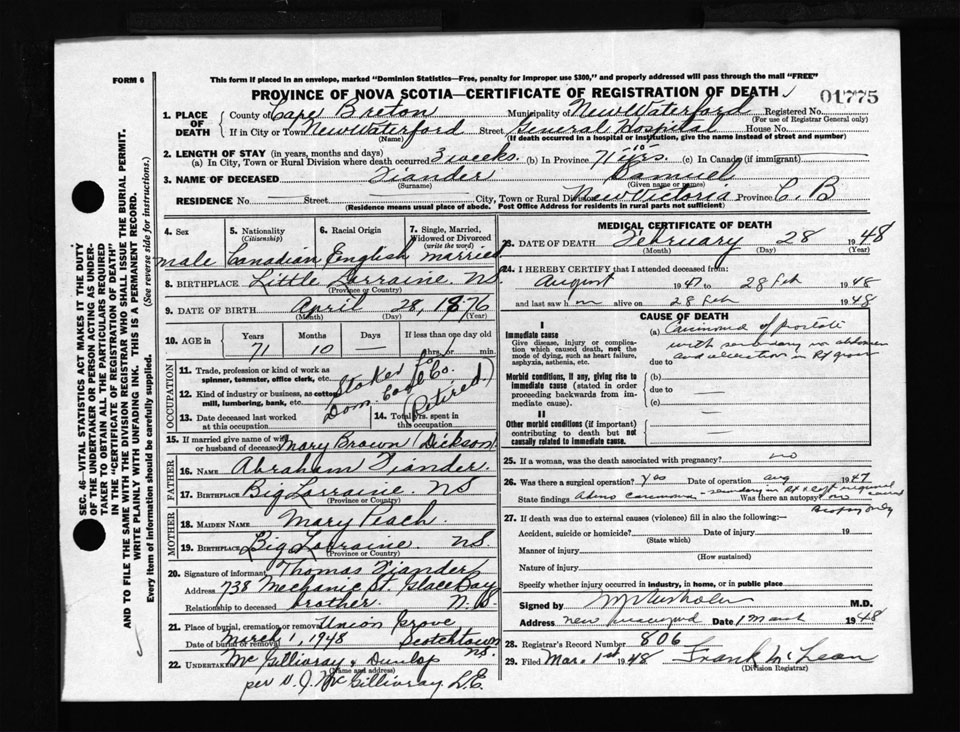 FORM 6
This form if placed in an envelope, marked "Dominion Statistics—Free, penalty for improper use $300," and properly addressed will pass through the mail "FREE"
PROVINCE OF NOVA SCOTIA—CERTIFICATE OF REGISTRATION OF DEATH
01775
1. PLACE OF DEATH
County of Cape Breton Municipality of New Waterford Registered No.
(For use of Registrar General only)
If in City or Town New Waterford Street General Hospital House No.
(Name) (If death occurred in a hospital or institution, give the name instead of street and number)
2. LENGTH OF STAY (in years, months and days)
(a) In City, Town or Rural Division where death occurred 3 weeks. (b) In Province 71 yrs. 10 (c) In Canada (if immigrant)
3. NAME OF DECEASED Tiander Samuel
(Surname) (Given name or names)
RESIDENCE No. — Street — City, Town or Rural Division New Victoria Province C. B
(Residence means usual place of abode. Post Office Address for residents in rural parts not sufficient)
4. Sex
male
5. Nationality (Citizenship)
Canadian
6. Racial Origin
English
7. Single, Married, Widowed or Divorced (write the word)
married
8. BIRTHPLACE Little Lorraine. N.S.
(Province or Country)
9. DATE OF BIRTH April 28, 1876
(Month) (Day) (Year)
10. AGE in Years Months Days If less than one day old
71 10 — hrs. or min.
OCCUPATION
11. Trade, profession or kind of work as spinner, teamster, office clerk, etc. Stoker for
12. Kind of industry or business, as cotton mill, lumbering, bank, etc. Dom. Coal Co.
(Retired)
13. Date deceased last worked at this occupation
14. Total yrs. spent in this occupation
15. If married give name of wife or husband of deceased Mary Brown (Dickson)
FATHER
16. NAME Abraham Tiander.
17. BIRTHPLACE Big Lorraine. N S
(Province or Country)
MOTHER
18. MAIDEN NAME Mary Peach.
19. BIRTHPLACE Big Lorraine. N.S.
(Province or Country)
20. Signature of informant Thomas Tiander
Address 738 Mechanic St. Glace Bay
Relationship to deceased brother. N.S.
21. Place of burial, cremation or removal Union Grove
Date of burial or removal March 1, 1948 Scotchtown N.S.
22. UNDERTAKER McGillivray & Dunlop
(Name and address)
per N. J. McGillivray. L.E.
MEDICAL CERTIFICATE OF DEATH
23. DATE OF DEATH February 28 1948
(Month) (Day) (Year)
24. I HEREBY CERTIFY that I attended deceased from:
August 1947 to 28 Feb 1948
and last saw h m alive on 28 Feb 1948
CAUSE OF DEATH
I
Immediate cause
Give disease, injury or complication which caused death, not the mode of dying, such as heart failure, asphyxia, asthenia, etc.
(a) Carcinoma of prostate
with secondary in abdomen
and ulceration in Rt groin
due to
Morbid conditions, if any, giving rise to immediate cause (stated in order proceeding backwards from immediate cause).
(b) —
due to —
(c) —
II
Other morbid conditions (if important) contributing to death but not causally related to immediate cause.
25. If a woman, was the death associated with pregnancy? no
26. Was there a surgical operation? yes Date of operation aug 1947
State findings Was there an autopsy? no
Biopsy only
27. If death was due to external causes (violence) fill in also the following:—
Accident, suicide or homicide? Date of injury 19
(State which)
Manner of injury
(How sustained)
Nature of injury
Specify whether injury occurred in industry, in home, or in public place
Signed by M.D.
Address New Waterford Date 1 March 1948
28. Registrar's Record Number 806
29. Filed Mar. 1st 1948 Frank McLean
(Division Registrar)
SEC. 46—VITAL STATISTICS ACT MAKES IT THE DUTY
OF THE UNDERTAKER OR PERSON ACTING AS UNDERTAKER TO OBTAIN ALL THE PARTICULARS REQUIRED
IN THE "CERTIFICATE OF REGISTRATION OF DEATH"
AND TO FILE THE SAME WITH THE DIVISION REGISTRAR WHO SHALL ISSUE THE BURIAL PERMIT.
WRITE PLAINLY WITH UNFADING INK. THIS IS A PERMANENT RECORD.
Every item of information should be carefully supplied. (See reverse side for instructions.)